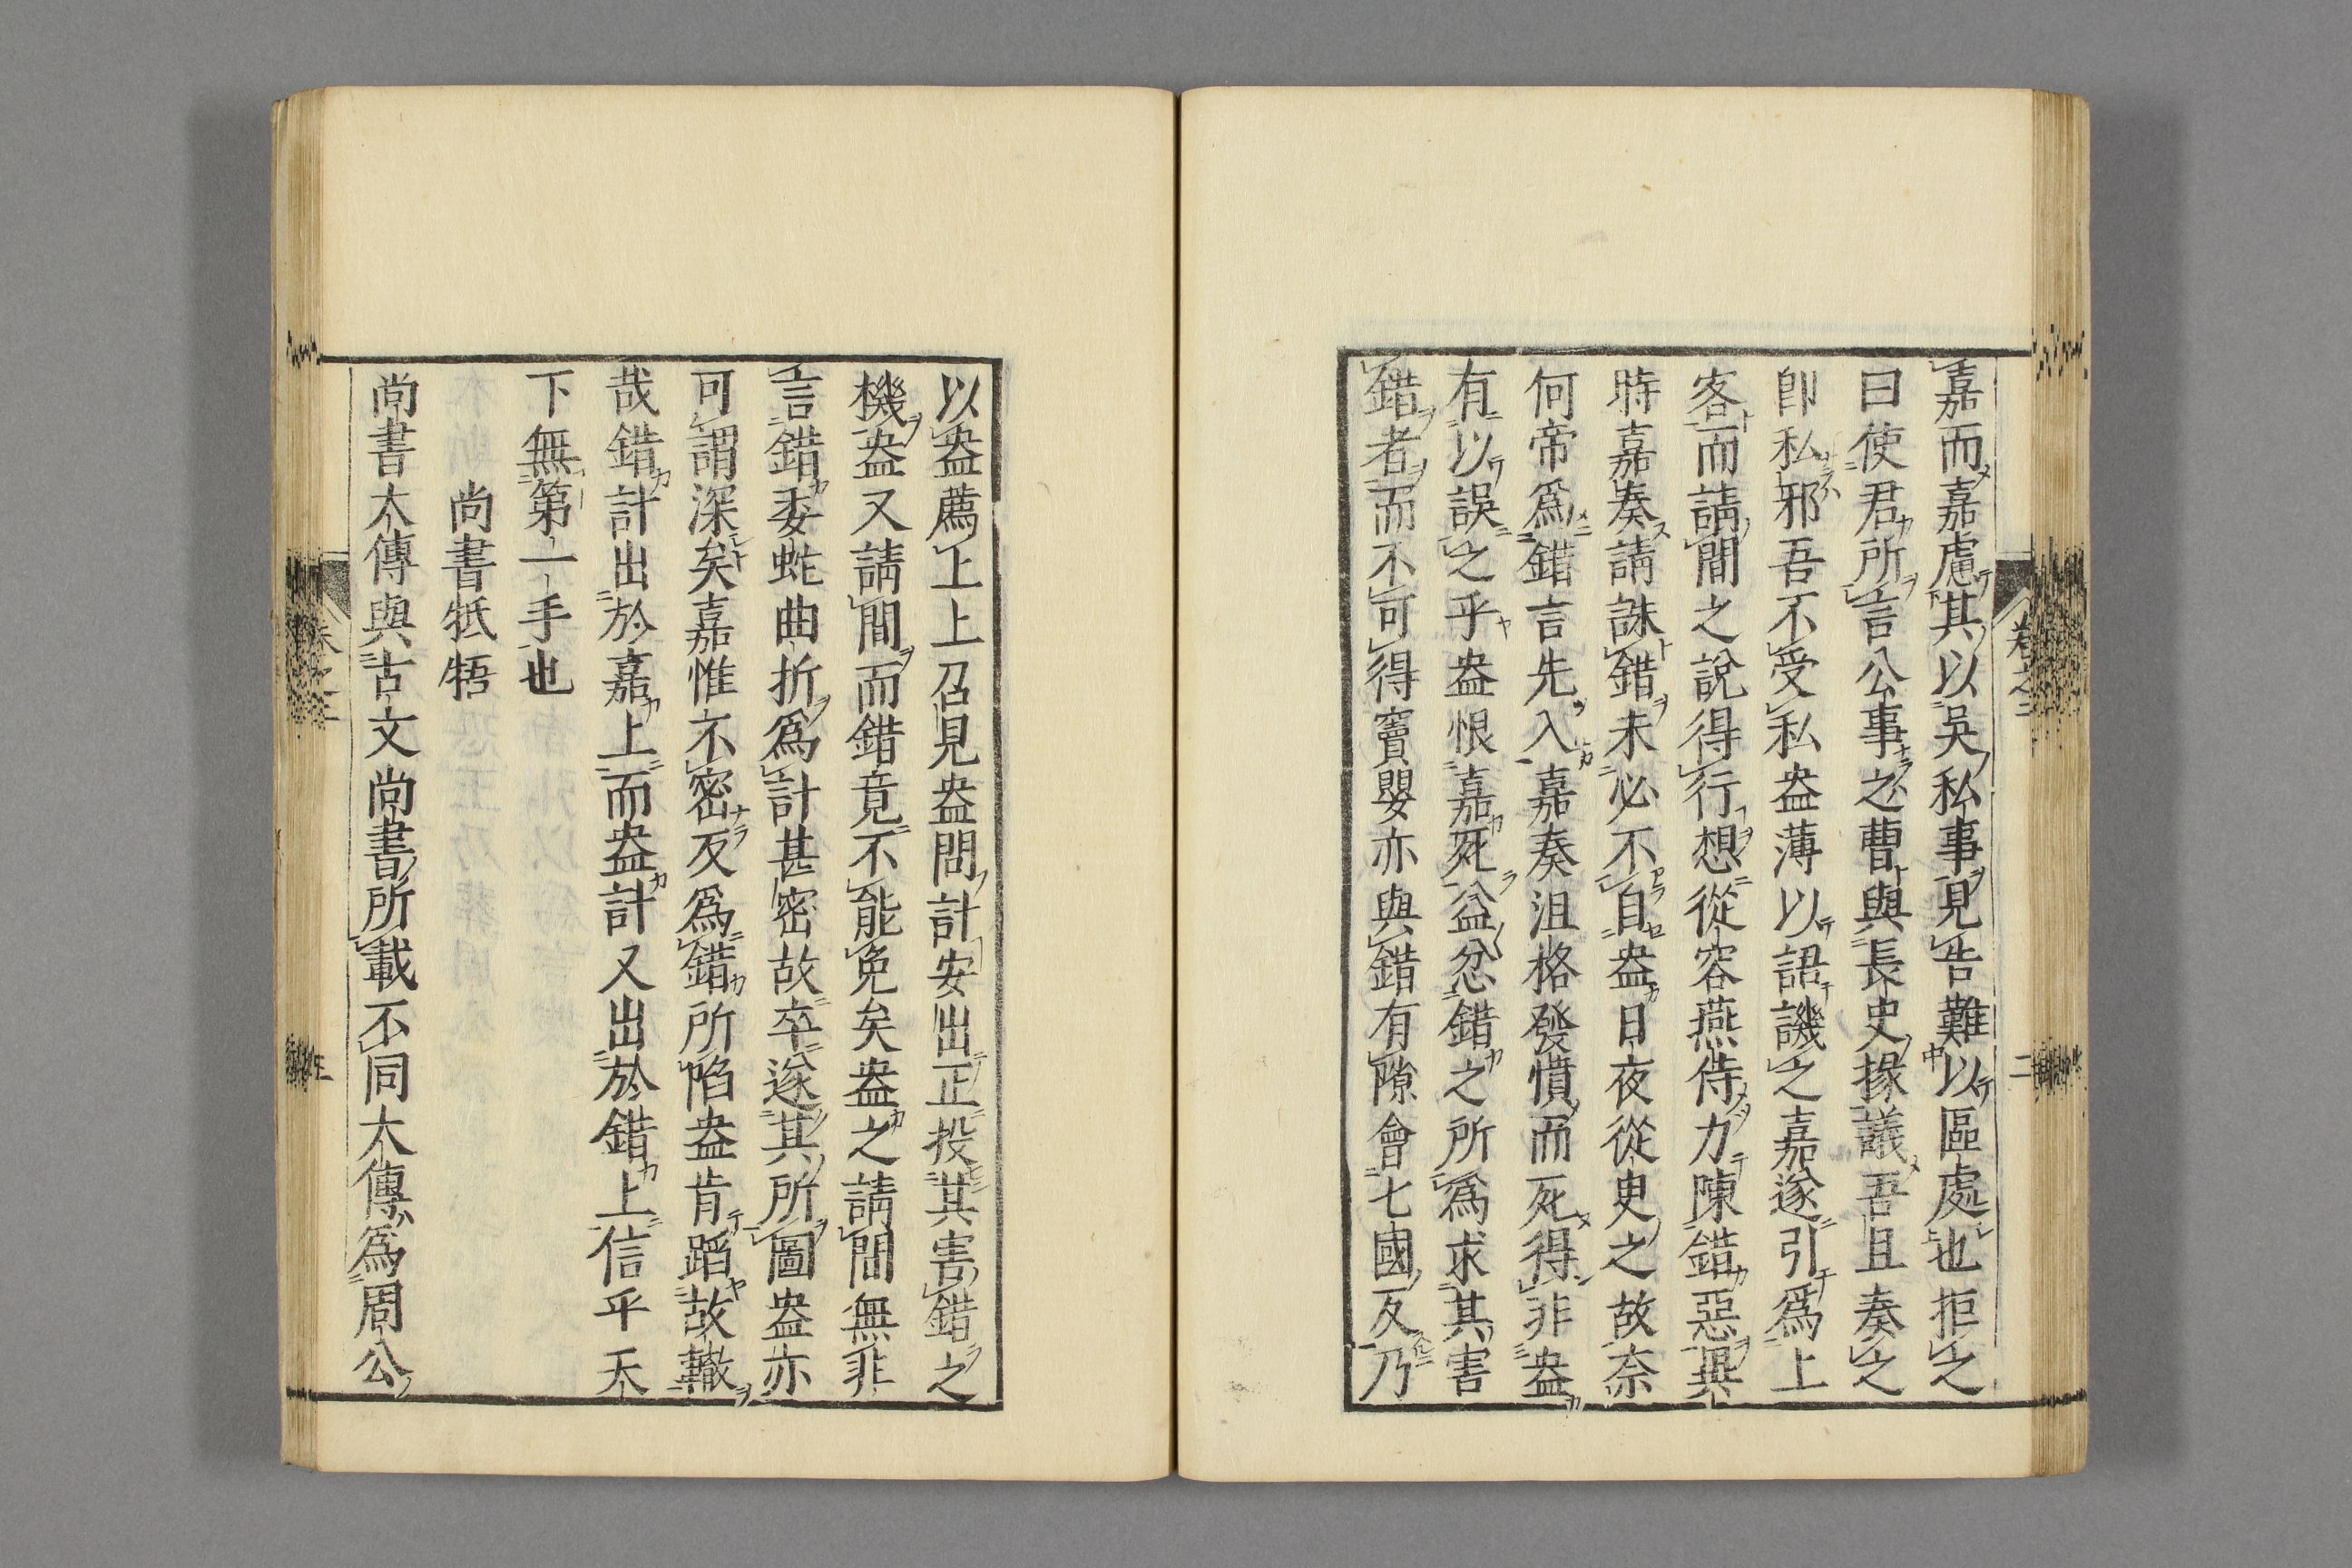 嘉而嘉慮其以吳私事見告難以區處也拒之
曰使君所言公事之曹與長史掾議吾且奏之
卽私邪吾不受私盎薄以語譏之嘉遂引爲上
客而請間之說得行想從容燕侍力陳錯惡與
時嘉奏請誅錯未必不自盎日夜從臾之故奈
何帝爲錯言先入嘉奏沮格發憤而死得非盎
有以誤之乎盎恨嘉死益忿錯之所爲求其害
錯者而不可得竇嬰亦與錯有隙會七國反乃
以盎薦上上召見盎問計安出正投其害錯之
機盎又請間而錯竟不能免矣盎之請間無非
言錯委蛇曲折爲計甚密故卒遂其所圖盎亦
可謂深矣嘉惟不密反爲錯所陷盎肯蹈故轍
哉錯計出於嘉上而盎計又出於錯上信乎天
下無第一手也
尚書牴牾
尚書大傳與古文尚書所載不同大傳爲周公
卷之二
二